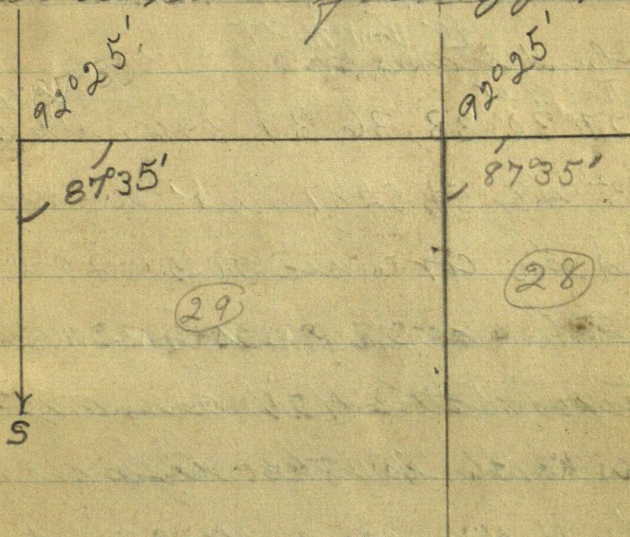 92°25' 92°25'
87°35' 87°35'
29 28
S